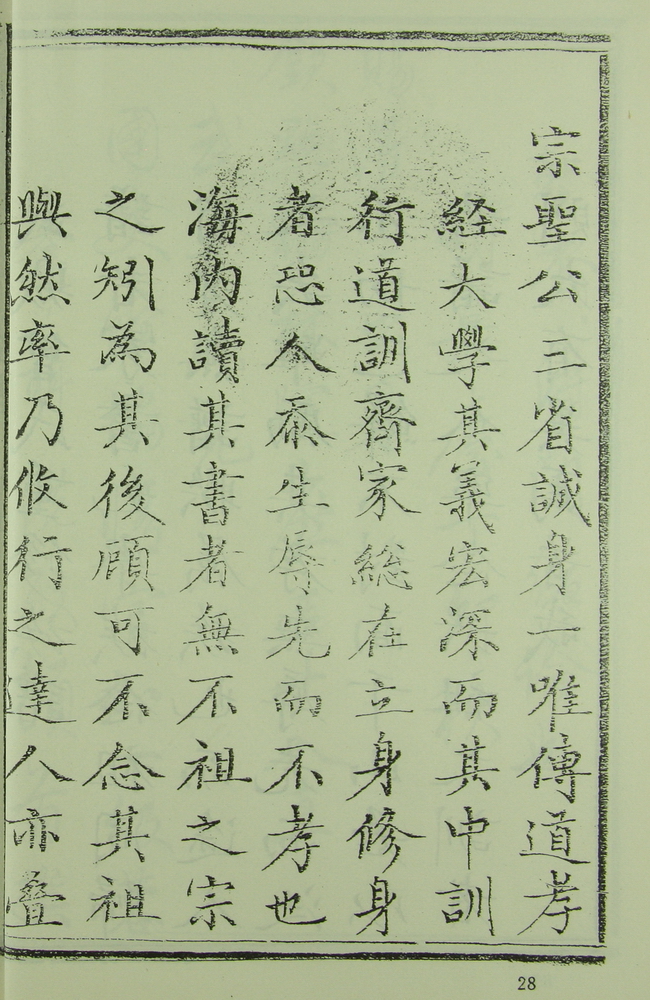 宗聖公三省誠身一唯傳道孝
経大學其義宏深而其中訓
行道訓齊家総在立身修身
者恐人忝生辱先而不孝也
海內讀其書者無不祖之宗
之矧為其後頋可不念其祖
與然率乃攸行之達人亦疊
28